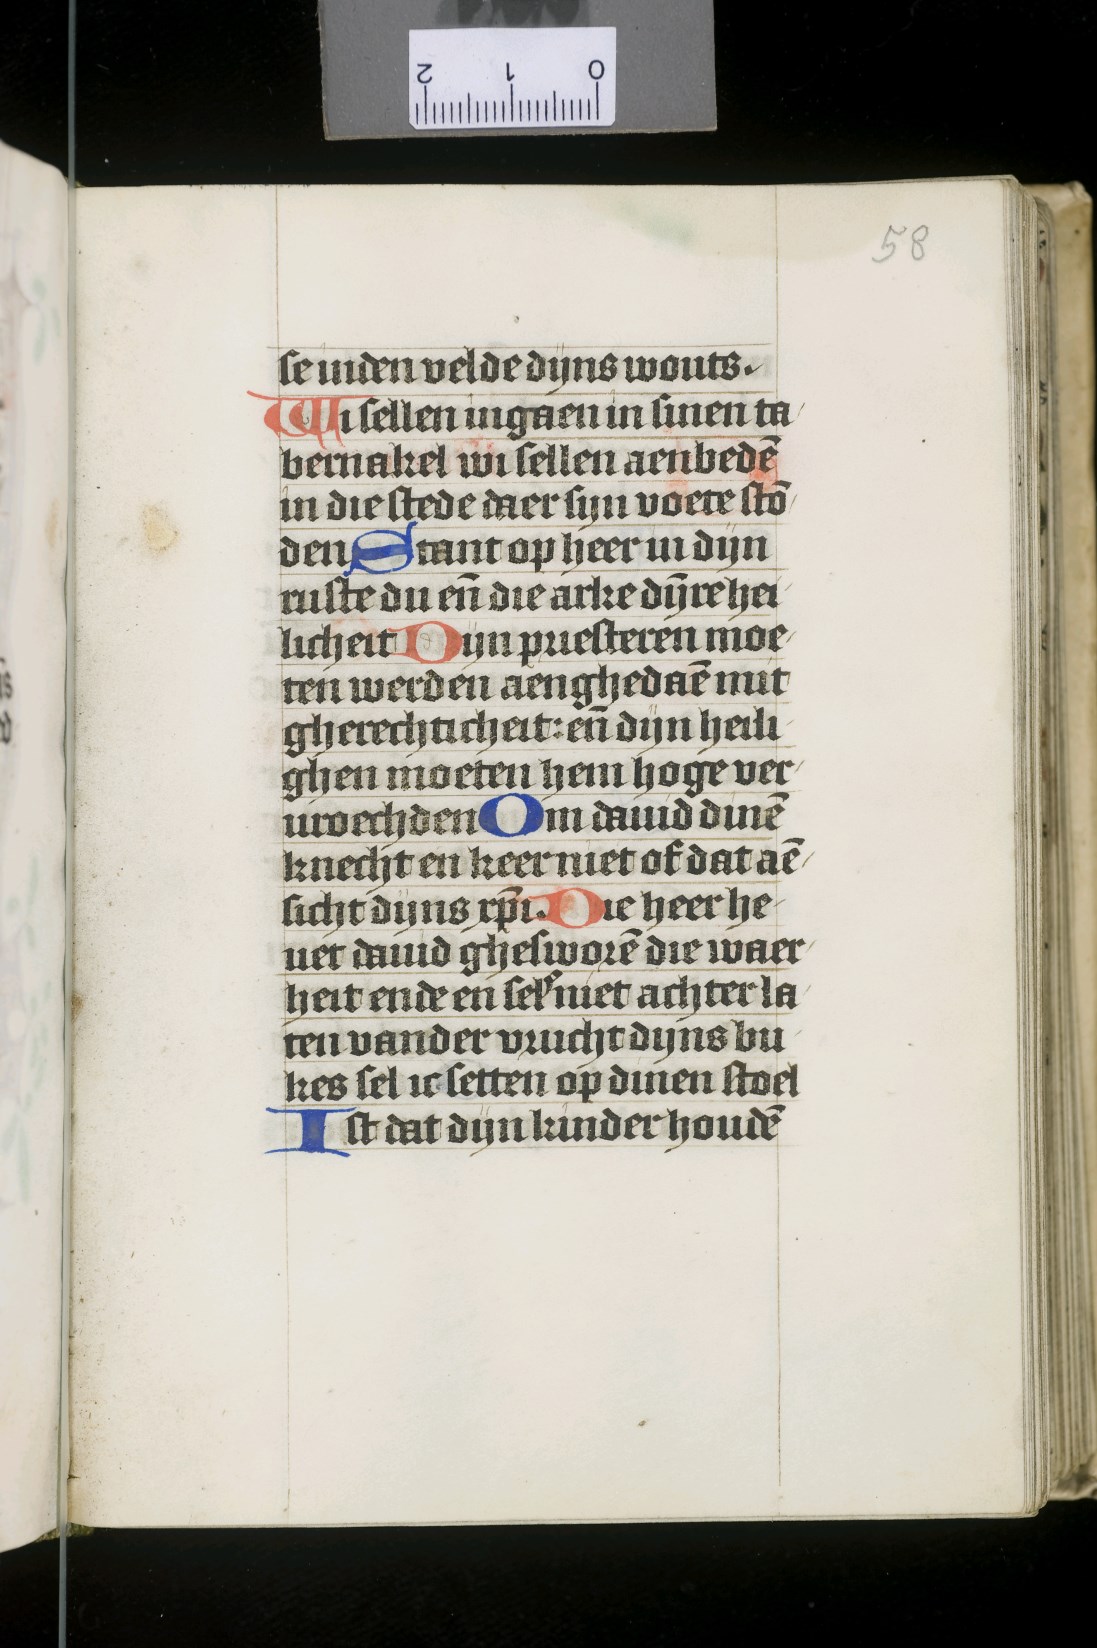 58
se inden velde dijns wouts.
Wi sellen ingaen in sinen ta
bernakel wi sellen aenbedē
in die stede daer sijn voete stō
den Stant op heer in dijn
ruste du en̄ die arke dijn̄re hei
licheit Dijn priesteren moe
ten werden aenghedaē mit
gherechticheit: en̄ dijn heili
ghen moeten hem hoge ver
vroechden Om dauid dinē
knecht en keer niet of dat aē
sicht dijns xp̄i. Die heer he
uet dauid ghesworē die waer
heit ende en sel niet achter la
ten vander vrucht dijns bu
kes sel ic setten op dinen stoel
Ist dat dijn kinder houdē
2 1 0